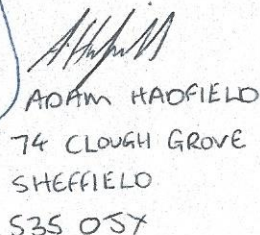 ADAM HADFIELD
74 CLOUGH GROVE
SHEFFIELD
S35 0JX